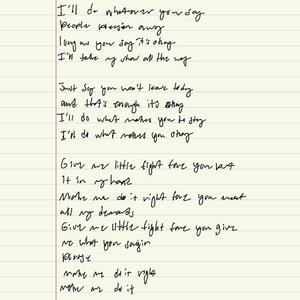 I'll do whatever you say
people away
long as you say it's okay
I'll take my show all the way
Just say you won't leave today
and that's enough it's okay
I'll do what makes you to stay
I'll do what makes you okay
Give me little fight fore you put
it in my
Make me do it right fore you meet
all my demands
Give me little fight fore you give
me what you sayin
make me do it right
make me do it